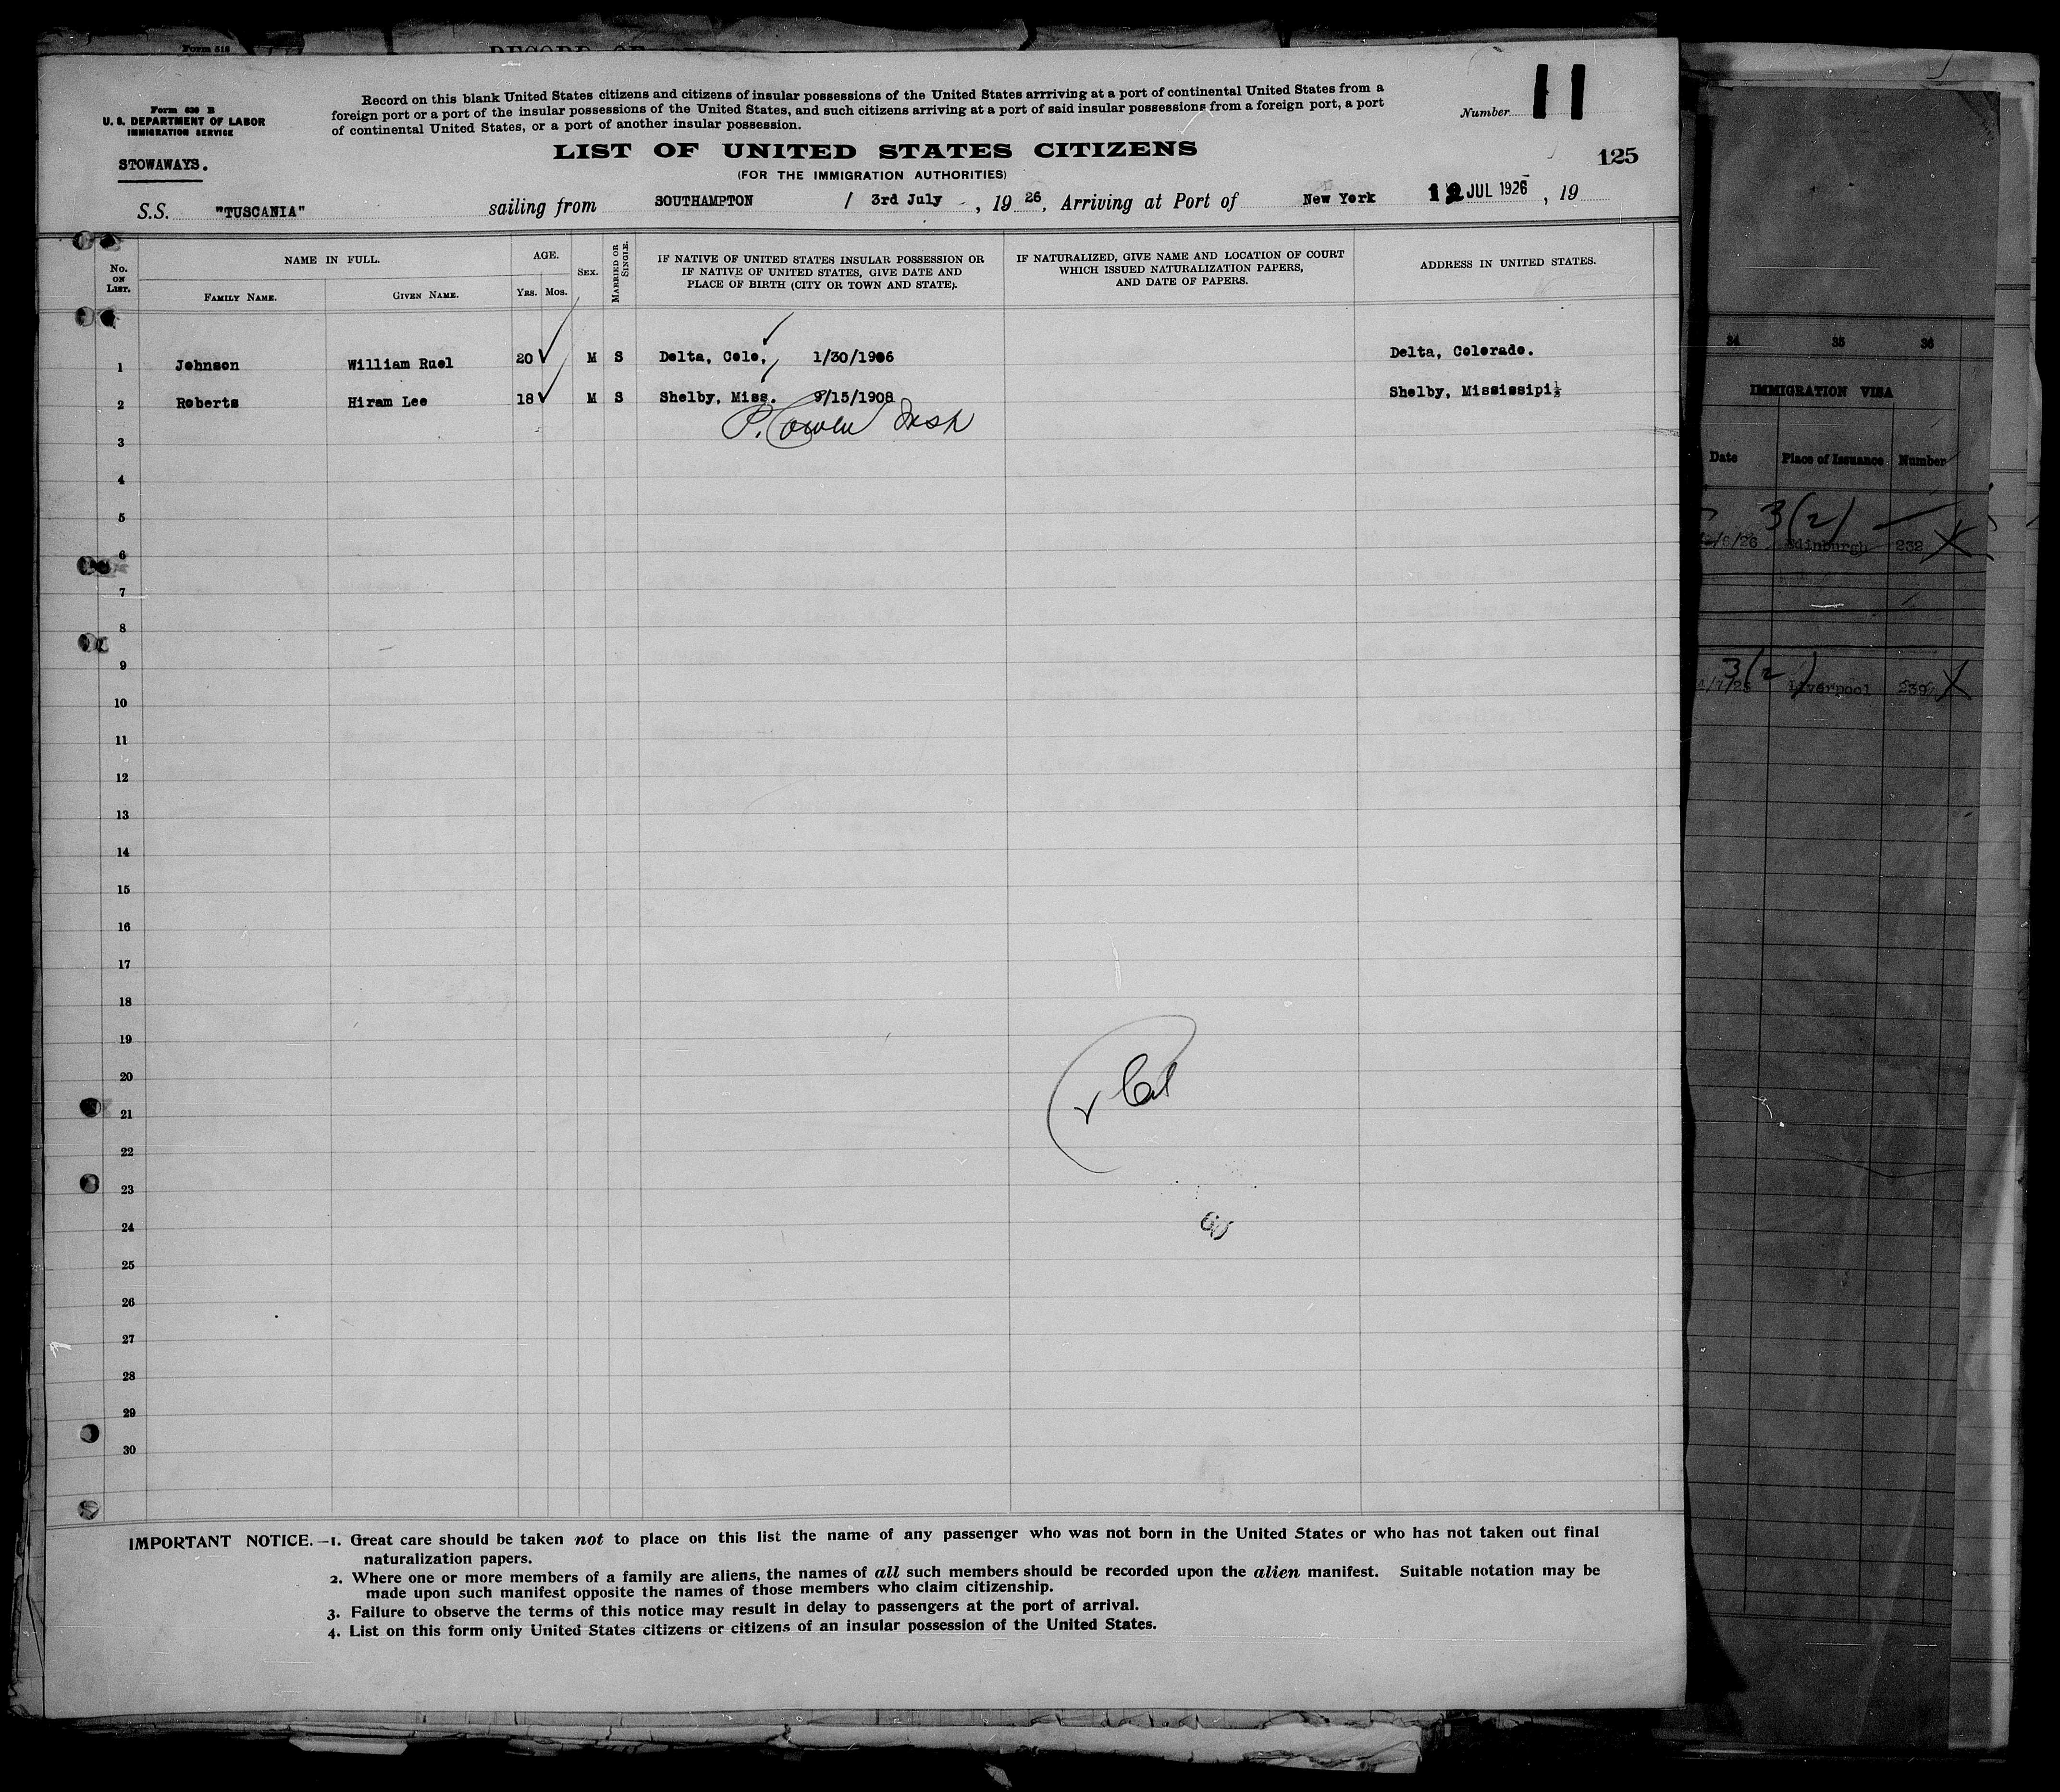 Form 630 B
U. S. DEPARTMENT OF LABOR
IMMIGRATION SERVICE
STOWAWAYS.
Record on this blank United States citizens and citizens of insular possessions of the United States arrriving at a port of continental United States from a
foreign port or a port of the insular possessions of the United States, and such citizens arriving at a port of said insular possessions from a foreign port, a port
of continental United States, or a port of another insular possession.
Number 11
LIST OF UNITED STATES CITIZENS
(FOR THE IMMIGRATION AUTHORITIES)
125
S.S. "TUSCANIA" sailing from SOUTHAMPTON / 3rd July , 19 26, Arriving at Port of New York 12 JUL 1926 , 19
No. ON LIST.
NAME IN FULL.
FAMILY NAME. GIVEN NAME.
AGE.
Yrs. Mos.
SEX.
MARRIED OR SINGLE.
IF NATIVE OF UNITED STATES INSULAR POSSESSION OR
IF NATIVE OF UNITED STATES, GIVE DATE AND
PLACE OF BIRTH (CITY OR TOWN AND STATE).
IF NATURALIZED, GIVE NAME AND LOCATION OF COURT
WHICH ISSUED NATURALIZATION PAPERS,
AND DATE OF PAPERS.
ADDRESS IN UNITED STATES.
1 Johnson William Ruel 20 M S Delta, Colo, 1/30/1906 Delta, Colorado.
2 Roberts Hiram Lee 18 M S Shelby, Miss. /15/1908 Shelby, Mississipi
3
4
5
6
7
8
9
10
11
12
13
14
15
16
17
18
19
20
21
22
23
24
25
26
27
28
29
30
IMPORTANT NOTICE.—1. Great care should be taken not to place on this list the name of any passenger who was not born in the United States or who has not taken out final
naturalization papers.
2. Where one or more members of a family are aliens, the names of all such members should be recorded upon the alien manifest. Suitable notation may be
made upon such manifest opposite the names of those members who claim citizenship.
3. Failure to observe the terms of this notice may result in delay to passengers at the port of arrival.
4. List on this form only United States citizens or citizens of an insular possession of the United States.
34 35 36
IMMIGRATION VISA
Date Place of Issuance Number
3(2)
/6/26 Edinburgh 232
3(2)
/7/26 Liverpool 239